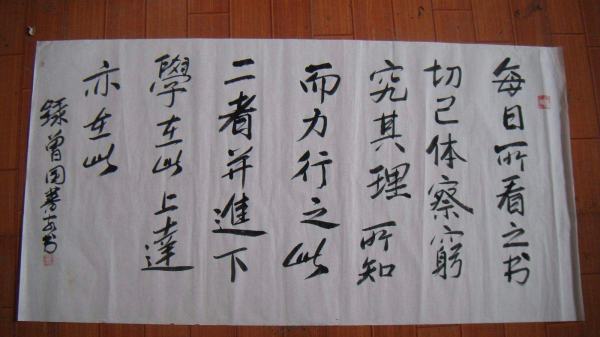 每日所看之书
切己体察穷
究其理所知
而力行之此
二者并進下
學在此上達
亦在此
錄曾国藩